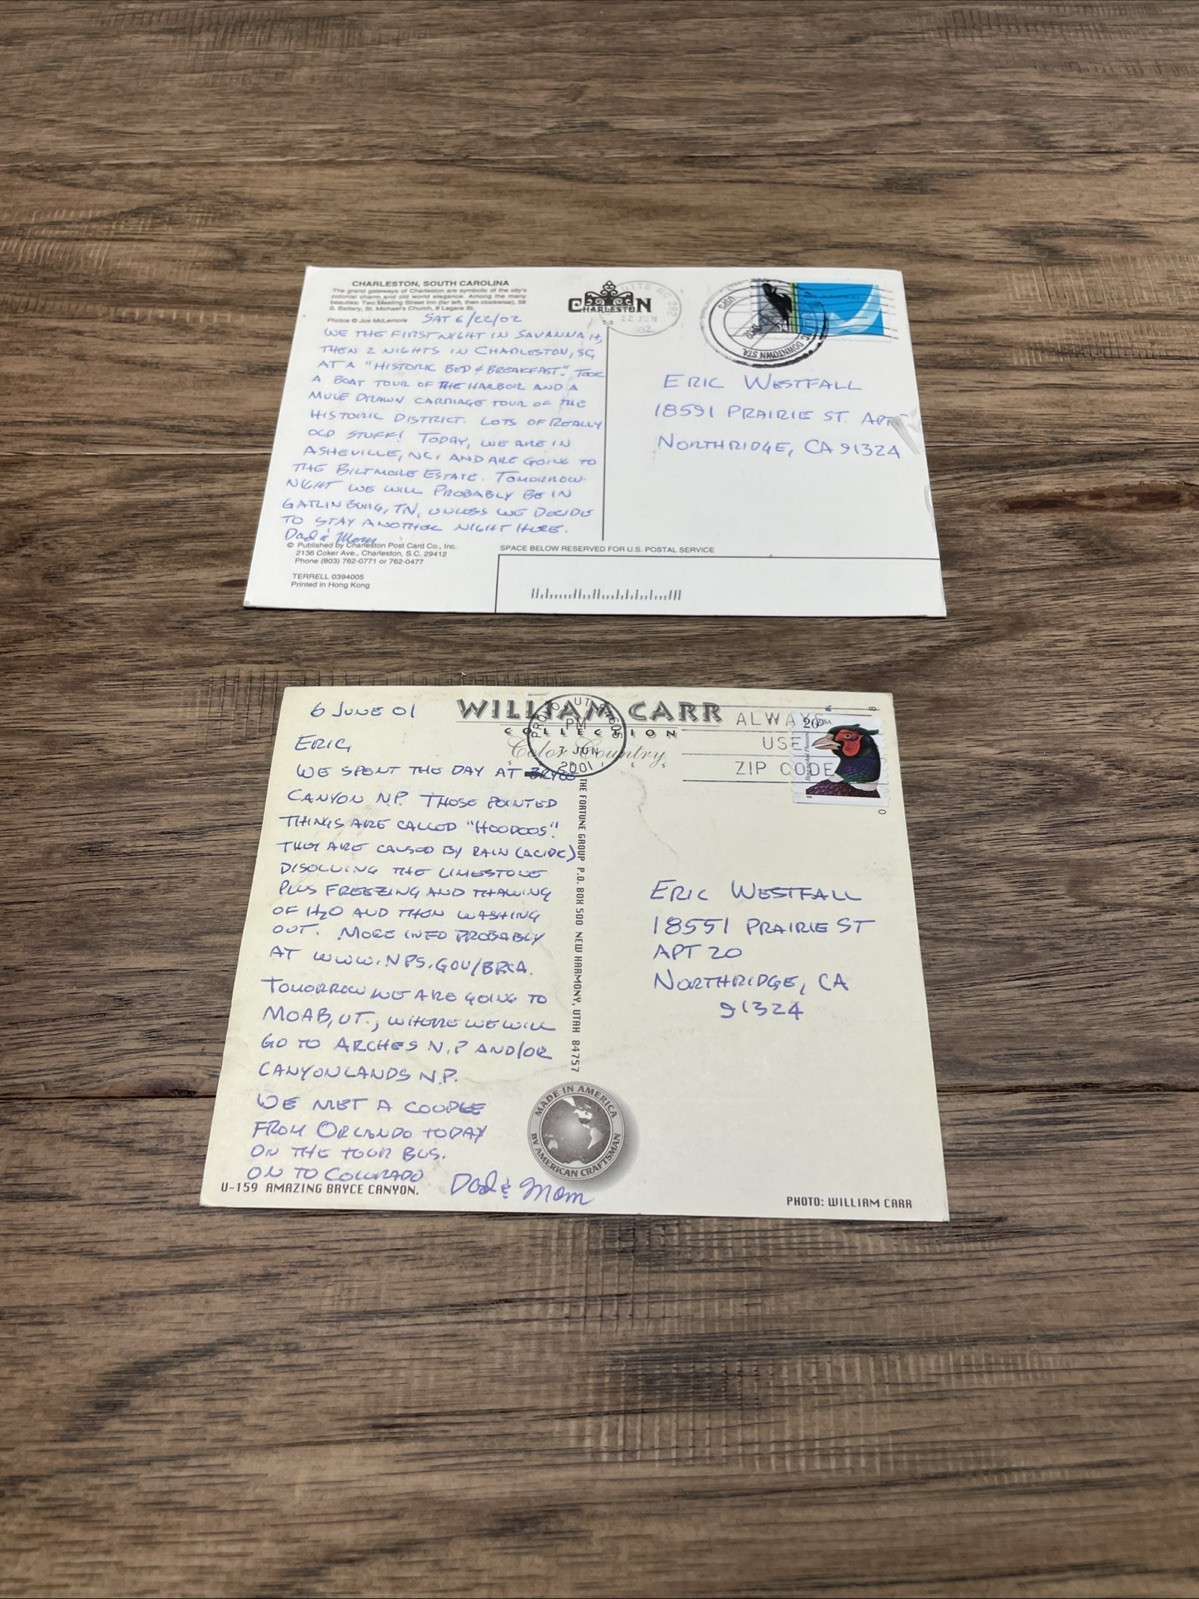 CHARLESTON, SOUTH CAROLINA
The grand gateways of Charleston are symbolic of the city's
colonial charm and old world elegance. Among the many
beauties: Two Meeting Street Inn (far left, then clockwise), 58
S. Battery, St. Michael's Church, 8 Legare St.
Photos © Joe McLemore
SAT 6/22/02
WE THE FIRST NIGHT IN SAVANNAH,
THEN 2 NIGHTS IN CHARLESTON, SC,
AT A "HISTORIC BED & BREAKFAST." TOOK
A BOAT TOUR OF THE HARBOR AND A
MULE DRAWN CARRIAGE TOUR OF THE
HISTORIC DISTRICT. LOTS OF REALLY
OLD STUFF! TODAY, WE ARE IN
ASHEVILLE, NC, AND ARE GOING TO
THE BILTMORE ESTATE. TOMORROW
NIGHT WE WILL PROBABLY BE IN
GATLINBURG, TN, UNLESS WE DECIDE
TO STAY ANOTHER NIGHT HERE.
Dad & Mom
© Published by Charleston Post Card Co., Inc.
2136 Coker Ave., Charleston, S.C. 29412
Phone (803) 762-0771 or 762-0477
TERRELL 0394005
Printed in Hong Kong
CHARLESTON
22 JUN
DOWNTOWN STA.
USPS
ERIC WESTFALL
18591 PRAIRIE ST. APT
NORTHRIDGE, CA 91324
SPACE BELOW RESERVED FOR U.S. POSTAL SERVICE
6 JUNE 01
WILLIAM CARR
COLLECTION
Color Country
PROVO, UT
PM
7 JUN
2001
ALWAYS
USE
ZIP CODE
20 USA
ERIC,
WE SPENT THE DAY AT BRYCE
CANYON N.P. THOSE POINTED
THINGS ARE CALLED "HOODOOS".
THEY ARE CAUSED BY RAIN (ACIDIC)
DISOLVING THE LIMESTONE
PLUS FREEZING AND THAWING
OF H2O AND THEN WASHING
OUT. MORE INFO PROBABLY
AT WWW.NPS.GOV/BRCA.
TOMORROW WE ARE GOING TO
MOAB, UT., WHERE WE WILL
GO TO ARCHES N.P AND/OR
CANYONLANDS N.P.
WE MET A COUPLE
FROM ORLANDO TODAY
ON THE TOUR BUS.
ON TO COLORADO
Dad & Mom
U-159 AMAZING BRYCE CANYON.
THE FORTUNE GROUP P.O. BOX 500 NEW HARMONY, UTAH 84757
MADE IN AMERICA
BY AMERICAN CRAFTSMAN
ERIC WESTFALL
18551 PRAIRIE ST
APT 20
NORTHRIDGE, CA
91324
PHOTO: WILLIAM CARR